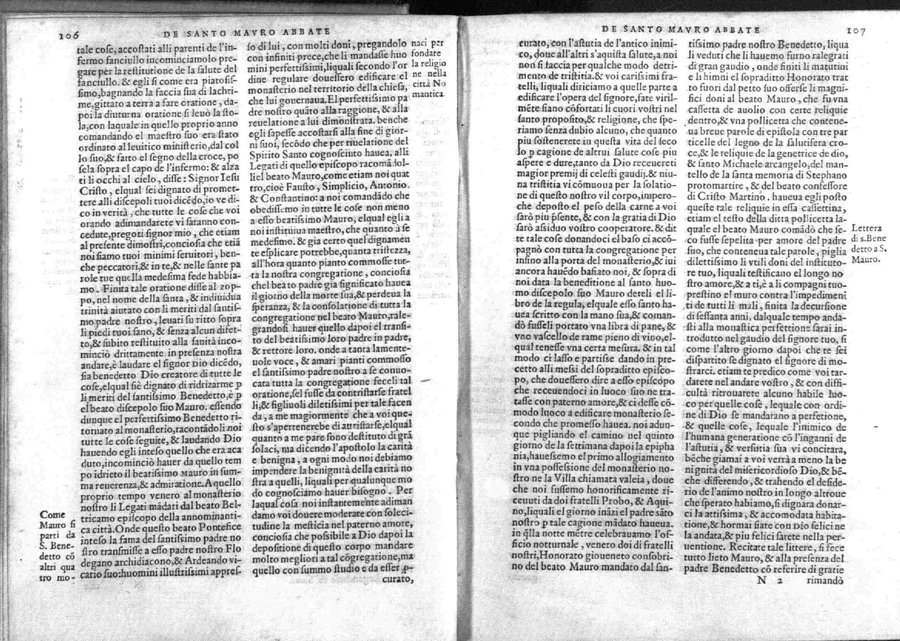 106
DE SANTO MAVRO ABBATE
tale cose, accostati alli parenti de l'in
fermo fanciullo incominciamolo pre
gare per la restitutione de la salute del
fanciullo. & egli si come era piatosis
simo, bagnando la faccia sua di lachri
me, gittato a terra a fare oratione, da
poi la diuturna oratione si leuò la sto
la, con laquale in quello proprio anno
comandando el maestro suo era stato
ordinato al leuitico ministerio, dal col
lo suo, & fatto el segno della croce, po
sela sopra el capo de l'infermo: & alza
ti li occhi al cielo, disse: Signor Iesu
Cristo, elqual sei dignato di promet
tere alli discepoli tuoi dicēdo, io ve di
co in verità, che tutte le cose che voi
orando adimandarete vi saranno con
cedute, pregoti signor mio, che etiam
al presente dimostri, conciosia che etiā
noi siamo tuoi minimi seruitori, ben
che peccatori, & in te, & nelle sante pa
role tue quella medesima fede habbia
mo. Finita tale oratione disse al zop
po, nel nome della santa, & indiuidua
trinità aiutato con li meriti dal santissi
mo padre nostro, leuati su ritto sopra
li piedi tuoi sano, & senza alcun difet
to, & subito restituito alla sanità inco-
minciò drittamente in presenza nostra
andare, è laudare el signor Dio dicēdo,
sia benedetto Dio creatore di tutte le
cose, elqual siè dignato di ridrizarme p
li meriti del santissimo Benedetto, è p
el beato discepolo suo Mauro. essendo
dunque el perfettissimo Benedetto ri-
tornato al monasterio, racontādoli noi
tutte le cose seguite, & laudando Dio
hauendo egli inteso quello che era aca
duto, incominciò hauer da quello tem
po idrieto il beatissimo Mauro in sum-
ma reuerenza, & admiratione. A quello
proprio tempo venero al monasterio
nostro li Legati mādati dal beato Bel-
tricamo episcopo della annominanti-
ca città. Onde questo beato Pontefice
inteso la fama del santissimo padre no
stro transmisse a esso padre nostro Flo
degano archidiacono, & Ardeando vi-
cario suo: huomini illustrissimi appres-
Come
Mauro si
parti da
S. Bene-
detto cō
altri qua
tro mo-
so di lui, con molti doni, pregandolo
con infiniti prece, che li mandasse huo
mini perfettissimi, liquali secondo l'or
dine regulare douessero edificare el
monasterio nel territorio della chiesa,
che lui gouernaua. El perfettissimo pa
dre nostro quāto alla raggione, & alla
reuelatione a lui dimostrata. benche
egli sapesse accostarsi alla fine di gior-
ni suoi, secōdo che per riuelatione del
Spirito Santo cognosciuto hauea. alli
Legati di quello episcopo racomādol-
liel beato Mauro, come etiam noi quat
tro, cioè Fausto, Simplicio, Antonio.
& Constantino: a noi comandādo che
obedissimo in tutte le cose non meno
a esso beatissimo Mauro, elqual egli a
noi instituiua maestro, che quanto a se
medesimo. & gia certo quel dignamen
te esplicare potrebbe, quanta tristezza,
all'hora quanto pianto commosse tut-
ta la nostra congregatione, conciosia
chel beato padre gia significato hauea
il giorno della morte sua, & perdeua la
speranza, & la consolatione di tutta la
congregatione nel beato Mauro, rale-
grandosi hauer quello dapoi el transi-
to del beatissimo loro padre in padre,
& rettore loro. onde a tanta lamente-
uole voce, & amari pianti commosso
el santissimo padre nostro a se conuo-
cata tutta la congregatione feceli tal
oratione, sel fusse da contristarse fratel
li, & figliuoli diletissimi per tale facen
da, a me magiormente che a voi que-
sto s'apertenerebe di attristarse, elqual
quanto a me pare sono destituto di grā
solaci, ma dicendo l'apostolo la carità
è benigna, a ogni modo noi debbiamo
impendere la benignità della carità no
stra a quelli, liquali per qualunque mo
do cognosciamo hauer bisogno. Per
laqual cosa noi instantemente adiman
damo voi douere moderare con soleci-
tudine la mesticia nel paterno amore,
conciosia che possibile a Dio dapoi la
depositione di questo corpo mandare
molto meglio ri a tal cōgregatione, ma
quello con summo studio e da esser p
curato,
naci par
fondare
la religio
ne nella
città No
mantica.
DE SANTO MAVRO ABBATE
107
curato, con l'astutia de l'antico inimi-
co, doue d'altri s'aquista salute, a noi
non si faccia per qualche modo detri-
mento de tristitia. & voi carissimi fra-
telli, liquali diriciamo a quelle parte a
edificare l'opera del signore, fate viril-
mēre siano cōsortati li cuori vostri nel
santo proposito, & religione, che spe-
riamo senza dubio alcuno, che quanto
piu sostenerete in questa vita del seco
lo p cagione de altrui salute cose piu
aspere e dure, tanto da Dio receuereti
magior premij di celesti gaudij, & niu-
na tristitia vi cōmuoua per la solatio-
ne di questo nostro vil corpo, impero-
che deposto el peso della carne a voi
sarò piu p̄sente, & con la gratia di Dio
sarò assiduo vostro cooperatore. & dit
te tale cose donandoci el bascio acco-
pagnò con tutta la congregatione per
insino alla porta del monasterio, & iui
ancora hauēdo basiato noi, & sopra di
noi data la beneditione al santo huo-
mo discepolo suo Mauro deteli el li-
bro de la regula, elquale esso santo ha-
uea scritto con la mano sua, & coman-
dò fusseli portato vna libra di pane, &
vno vascello de rame pieno di vino, el
qual tenesse vna certa mesura. & in tal
modo ci lassò e partisse dando in pre-
cetto alli messi del sopraditto episco-
po, che douessero dire a esso episcopo
che receuendoci in luoco suo ne tra-
tasse con paterno amore, & ci desse cō-
modo luoco a edificare monasterio se-
condo che promesso hauea. noi adun-
que pigliando el camino nel quinto
giorno de la settimana dapoi la epipha
nia, hauessemo el primo allogiamento
in vna possessione del monasterio no-
stro ne la Villa chiamata valeia, doue
che noi fussemo honorificamente ri-
ceuuti da doi fratelli Probo, & Aqui-
no, liquali el giorno ināzi el padre sāto
nostro p tale cagione mādato haueua.
in q̄lla notte mētre celebrauamo l'of-
ficio notturnale, venero doi di fratelli
nostri, Honorato giouneto consobri-
no del beato Mauro mandato dal san-
tissimo padre nostro Benedetto, liqua
li veduti che li hauemo furno ralegrati
de gran gaudio, onde finiti li matutini
e li himni el sopraditto Honorato trat
to fuori dal petto suo offerse li magni-
fici doni al beato Mauro, che fu vna
cassetta de auolio con certe reliquie
dentro, & vna pollicetta che contene-
ua breue parole di epistola con tre par
ticelle del legno de la salutifera cro-
ce, & le reliquie de la genetrice de dio,
& santo Michaele arcangelo, del man-
tello de la santa memoria di Stephano
protomartire, & del beato confessore
di Cristo Martino. haueua egli posto
queste tale reliquie in essa cassettina,
etiam el testo della ditta pollicetta la-
quale el beato Mauro comādò che se-
co fusse sepelita per amore del padre
suo, che contenea tale parole, piglia
dilettissimo li vtili doni del institu to-
re tuo, liquali testificano el longo no-
stro amore, & a ti, è a li compagni tuo-
prestino el muro contra l'impedimeni
ti de tutti li mali, finita la decursione
di sessanta anni, dalquale tempo anda-
sti alla monastica perfettione sarai in-
trodutto nel gaudio del signore tuo, si
come l'altro giorno dapoi che te sei
dispartito se dignato el signore di mo-
strarci. etiam te predico come voi tar-
darete nel andare vostro, & con diffi-
cultà ritrouarete alcuno habile luo-
co per quelle cose, lequale con ordi-
ne di Dio se mandarano a perfetione,
& quelle cose, lequale l'inimico de
l'humana generatione cō l'inganni de
l'astutia, & versutia sua vi concitara,
bēche giamai a voi verrà a meno la be
nignità del misericordioso Dio, & bē-
che differendo, & trahendo el deside-
rio de l'animo nostro in longo altroue
che sperato habiamo, si dignara donar-
ci la attissima, & accomodata habita-
tione, & hormai siate con Dio felici ne
la andata, & piu felici sarete nella per-
uentione. Recitate tale littere, si fece
tutto lieto Mauro, & alla presenza del
padre Benedetto cō referire di gratie
N 2 rimandò
Lettera
di s. Bene
detto a S.
Mauro.